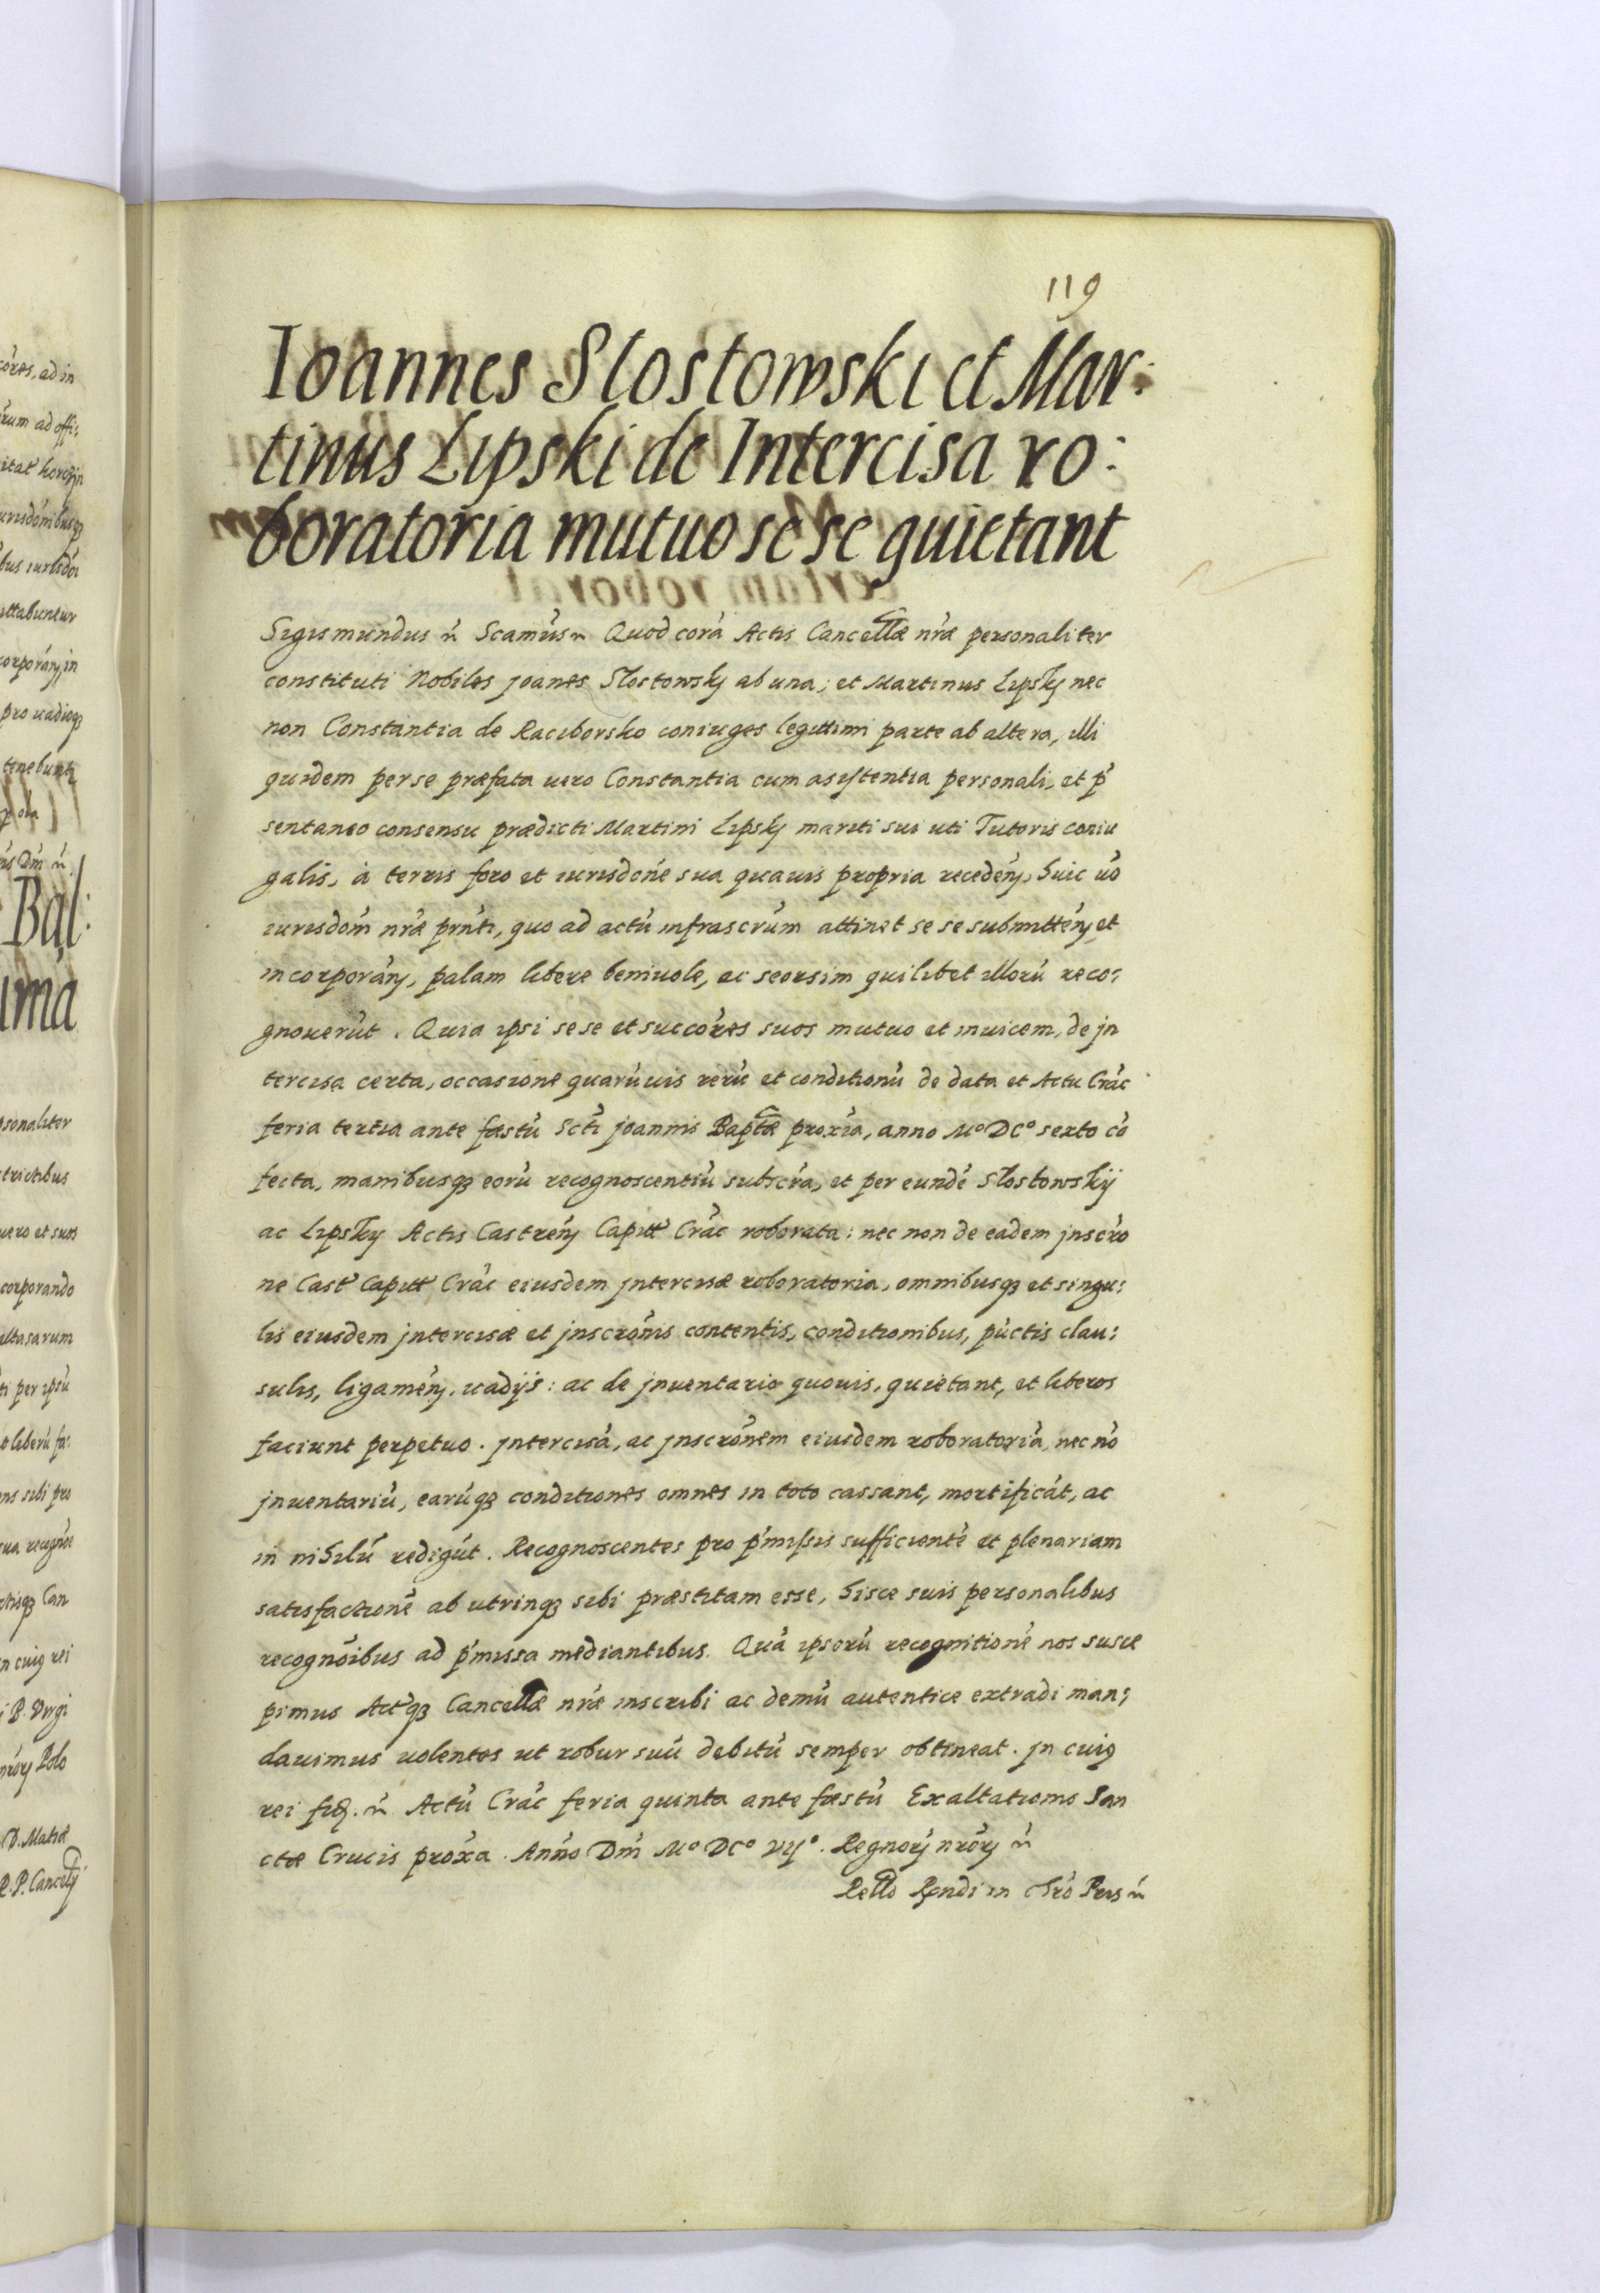 119
Ioannes Slostowski et Mar:
tinus Lipski de Intercisa ro:
boratoria mutuo se se quietant
Sigismundus Scamus Quod corã Actis Cancellæ nrae personaliter
constituti Nobiles joanes Slostowsky ab una; et Martinus Lipsky nec
non Constantia de Raciborsko coniuges legittimi parte ab altera, illi
quidem per se præfata vero Constantia cum asistentia personali, et p
sentaneo consensu prædicti Martini Lipsky mariti sui uti Tutoris coniu
galis, à terris foro et iurisdone sua quavis propria receden, huic vo
iurisdom nrae prnti, quo ad actũ infrascrum attinet se se submitten et
incorporan, palam libere benivole, ac seorsim quilibet illorũ reco:
gnoverũt. Quia ipsi se se et succores suos mutuo et invicem, de jn
tercisa certa, occasione quarũvis rerũ et conditionũ de data et Actu Crac
feria tertia ante fæstũ Scti joannis Baptæ proxia, anno M° DC° sexto cõ
fecta, manibusq3 eorũ recognoscentiũ subscra, et per eundẽ Slostowskij
ac Lipsky Actis Castren Capitt Crac roborata: nec non de eadem jnscro
ne Cast Capitt Crac eiusdem jntercisæ roboratoria, omnibusq3 et singu:
lis eiusdem jntercisæ et jnscronis contentis, conditionibus, pũctis clau:
sulis, ligamen, vadijs: ac de jnventario quovis, quietant, et liberos
faciunt perpetuo. jntercisã, ac jnscronem eiusdem roboratoriã, nec nõ
jnventariũ, earũq3 conditiones omnes in toto cassant, mortificãt, ac
in nihilũ redigũt. Recognoscentes pro pmissis sufficientẽ et plenariam
satisfactionẽ ab utrinq3 sibi præstitam esse, hisce suis personalibus
recognoibus ad pmissa mediantibus. Quã ipsorũ recognitionẽ nos susce
pimus Actq3 Cancellæ nrae inscribi ac demũ autentice extradi man:
davimus volentes ut robur suũ debitũ semper obtineat. jn cui9
rei fid. Actũ Crac feria quinta ante fæstũ Exaltationis San
ctæ Crucis proxa. Anno Dni M° DC° VIJ°. Regnorũ nrorũ
Rello Rendi in Chro Pris